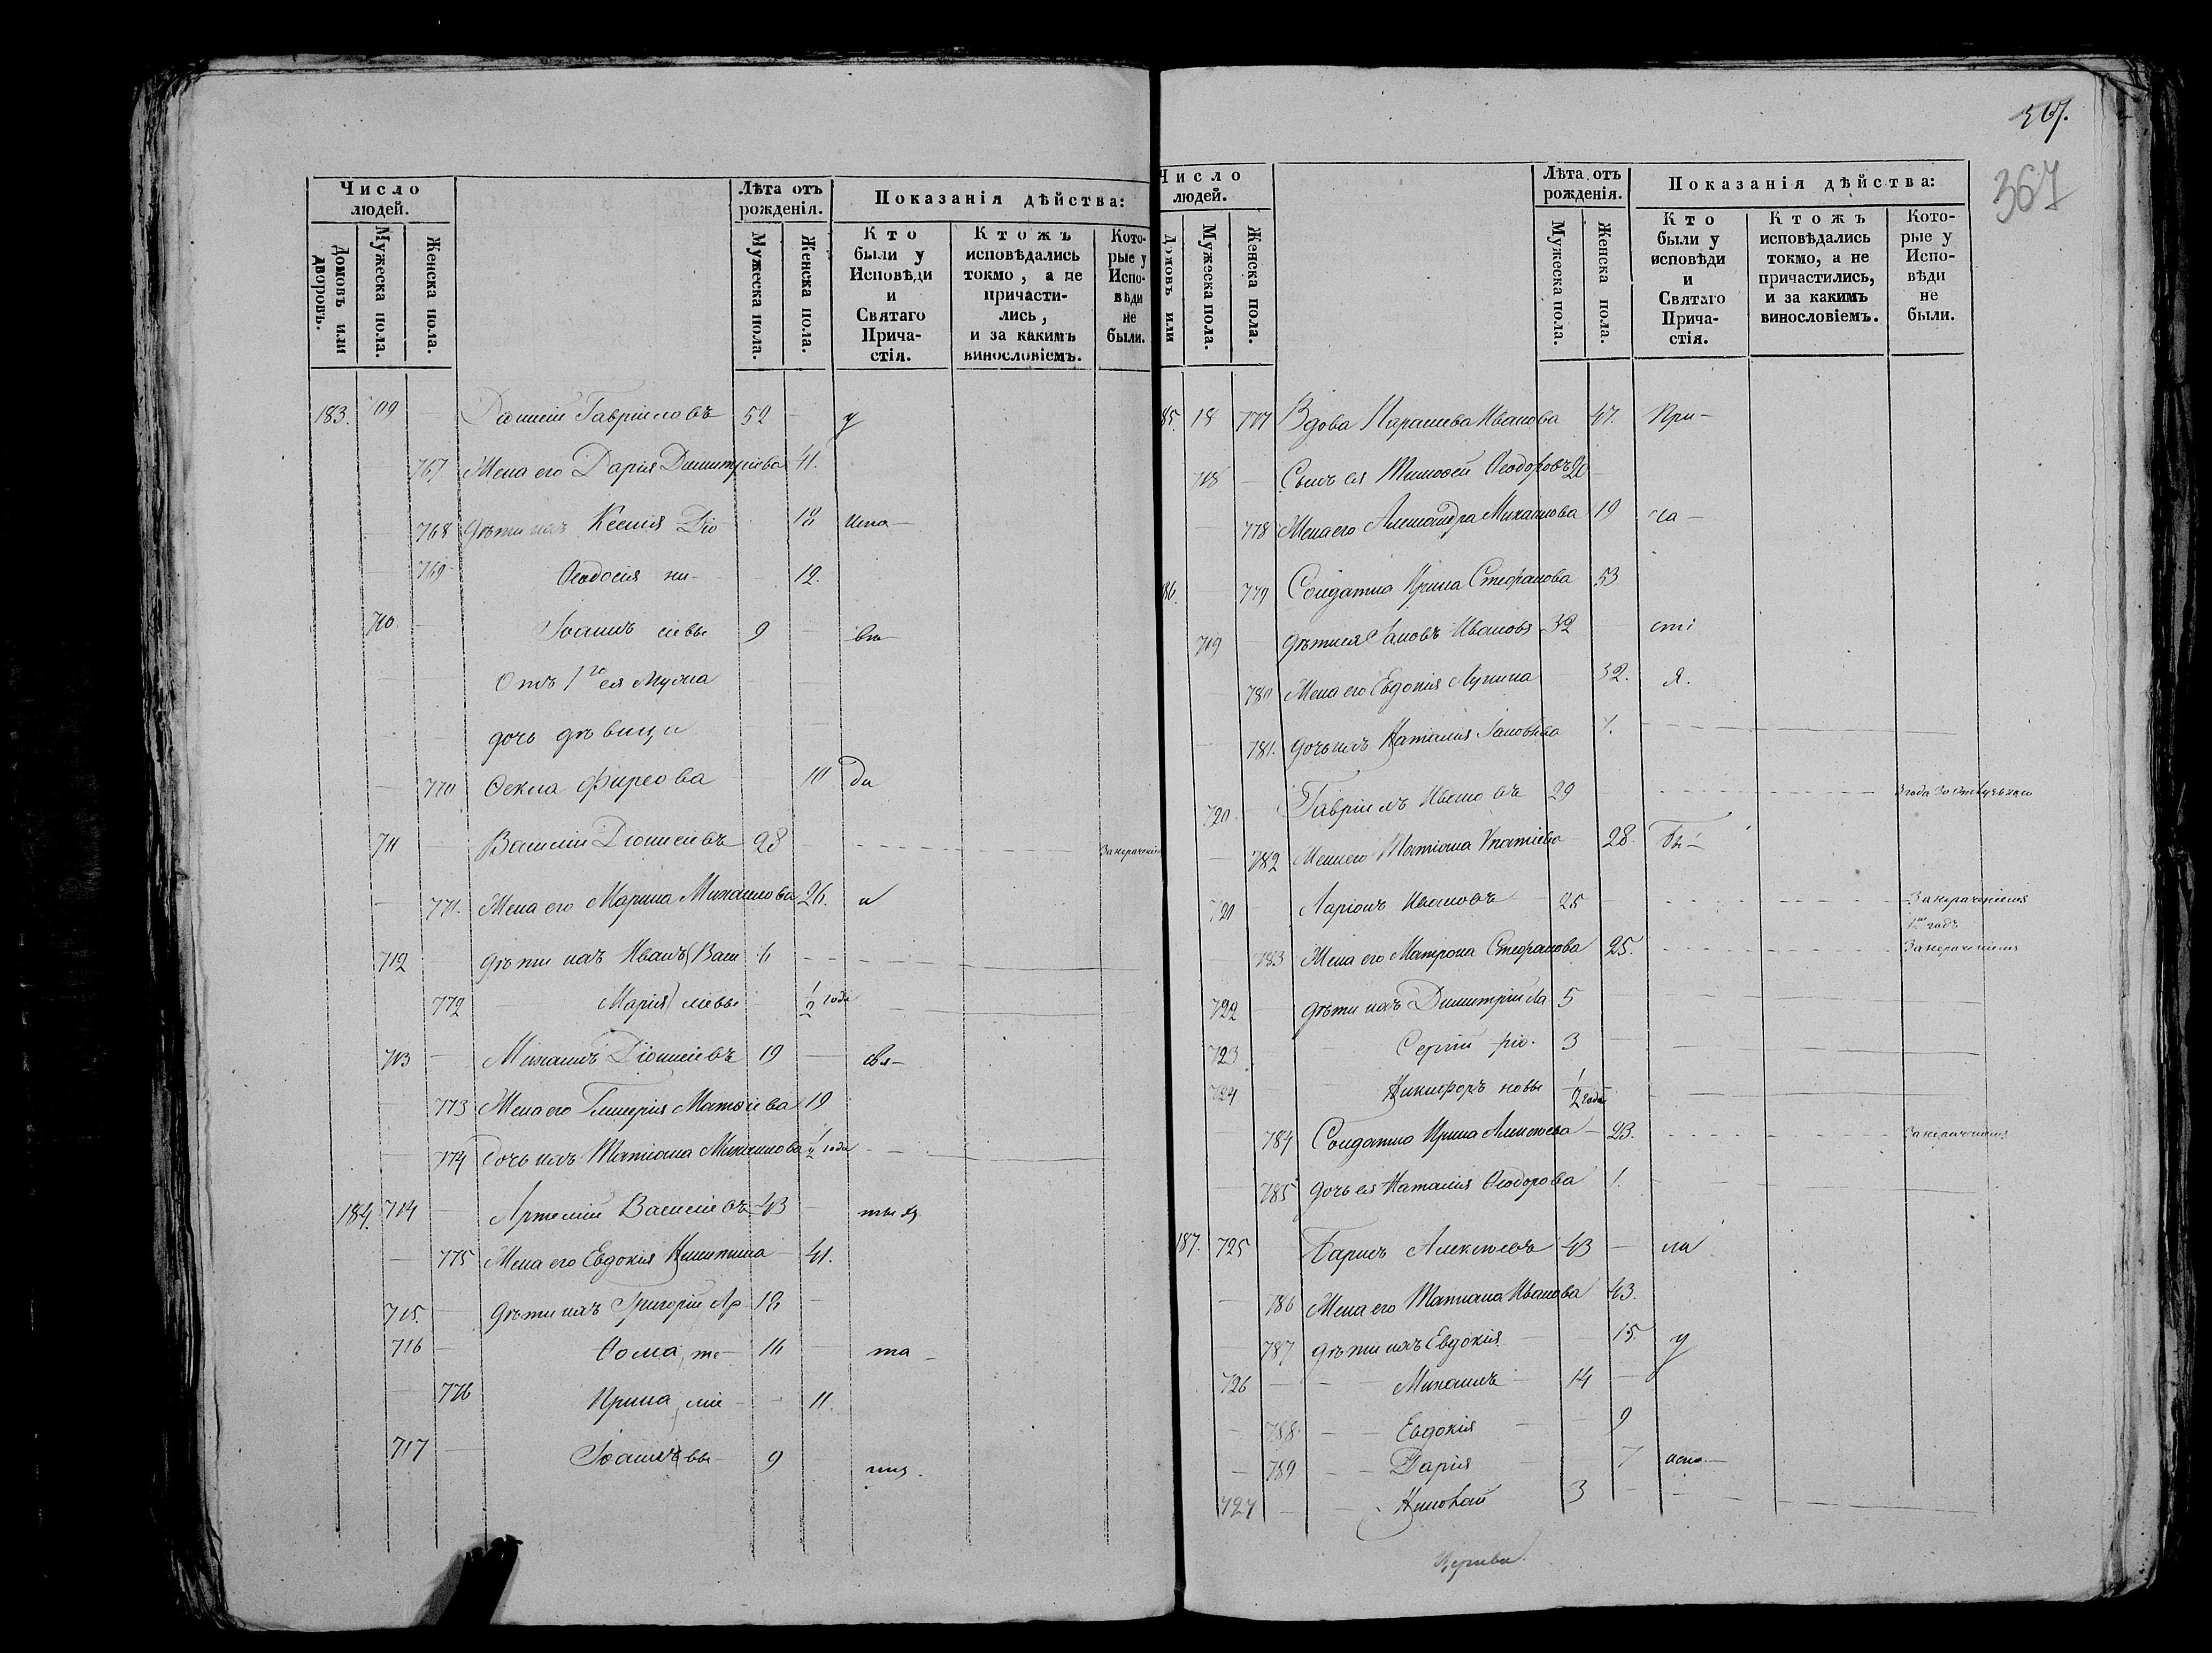 367.
367
Число людей. Лѣта отъ рожденія. Показанія дѣйства:
Домовъ или дворовъ. Мужеска пола. Женска пола. Мужеска пола. Женска пола. Кто были у Исповѣди и Святаго Прича-стія. Ктожъ исповѣдались токмо, а не причасти-лись, и за какимъ винословіемъ. Кото-рые у Испо-вѣди не были.
183. 709 — Гавріиловъ 52 — у
767 Жена его Дарія Димитріева 41.
768 Дѣти ихъ Ксенія Діо 18 Испо-
769 Ѳеодосія ни- 12.
710 — Іоаннъ сіевы 9 — вѣ
Отъ 1го ея мужа
дочь дѣвица
770 Ѳекла Фирсова ди
711 — Василій Діонисіевъ 28
771. Жена его Марина Михаилова 26. и
712 Дѣти ихъ Иванъ Васи 6
772 Марія льевы 1/2 года
713 — Михаилъ Діонисіевъ 19 — свя-
773 Жена его Гликерія Матѳіева 19
774 Дочь ихъ Татіана Михаилова 1/2 года
184. 714 — Артемій Василіевъ 43
775 Жена его Евдокія Никитина 41.
715. Дѣти ихъ Григорій Ар 18
716 — Ѳома те- та
776 Ирина, міе 11.
717 — Іоаннъ вы 9
Число людей. Лѣта отъ рожденія. Показанія дѣйства:
Домовъ или Мужеска пола. Женска пола. Мужеска пола. Женска пола. Кто были у исповѣди и Святаго Прича-стія. Ктожъ исповѣдались токмо, а не причастились, и за какимъ винословіемъ. Кото-рые у Испо-вѣди не были.
85. 18 777 Вдова Параскева Иванова 47. При-
718 — Сынъ ея Тимоѳей Ѳеодоровъ
778 Жена его Александра Михаилова 19 ча-
86. 779 Солдатка Ирина Стефанова 53
719 Дѣти ея Іаковъ Ивановъ 32 сті
780 Жена его Евдокія Лукина 32. я.
781. Дочь ихъ Наталія Іаковлева 1.
720 Гавріилъ Ивановъ 29
782 Жена его Татіана Ипатіева 28. Бы-
721 Ларіонъ Ивановъ 25 За нераченіемъ
1й годъ
783 Жена его Матрона Стефанова 25. За нераченіемъ
722 Дѣти ихъ Димитрій Ла 5
723 Сергій ріо- 3
724 Никифоръ новы 1/2 года
784 Солдатка Ирина Алексѣева 23. За нераченіемъ
785 Дочь ея Наталія Ѳеодорова 1.
187. 725 Борисъ Алексѣевъ 43 — ли
786 Жена его Татіана Иванова 43.
787 Дѣти ихъ Евдокія 15. у
726 Михаилъ 14
788 Евдокія 9
789 Дарія 7 испо-
727 Николай 3
Церкви